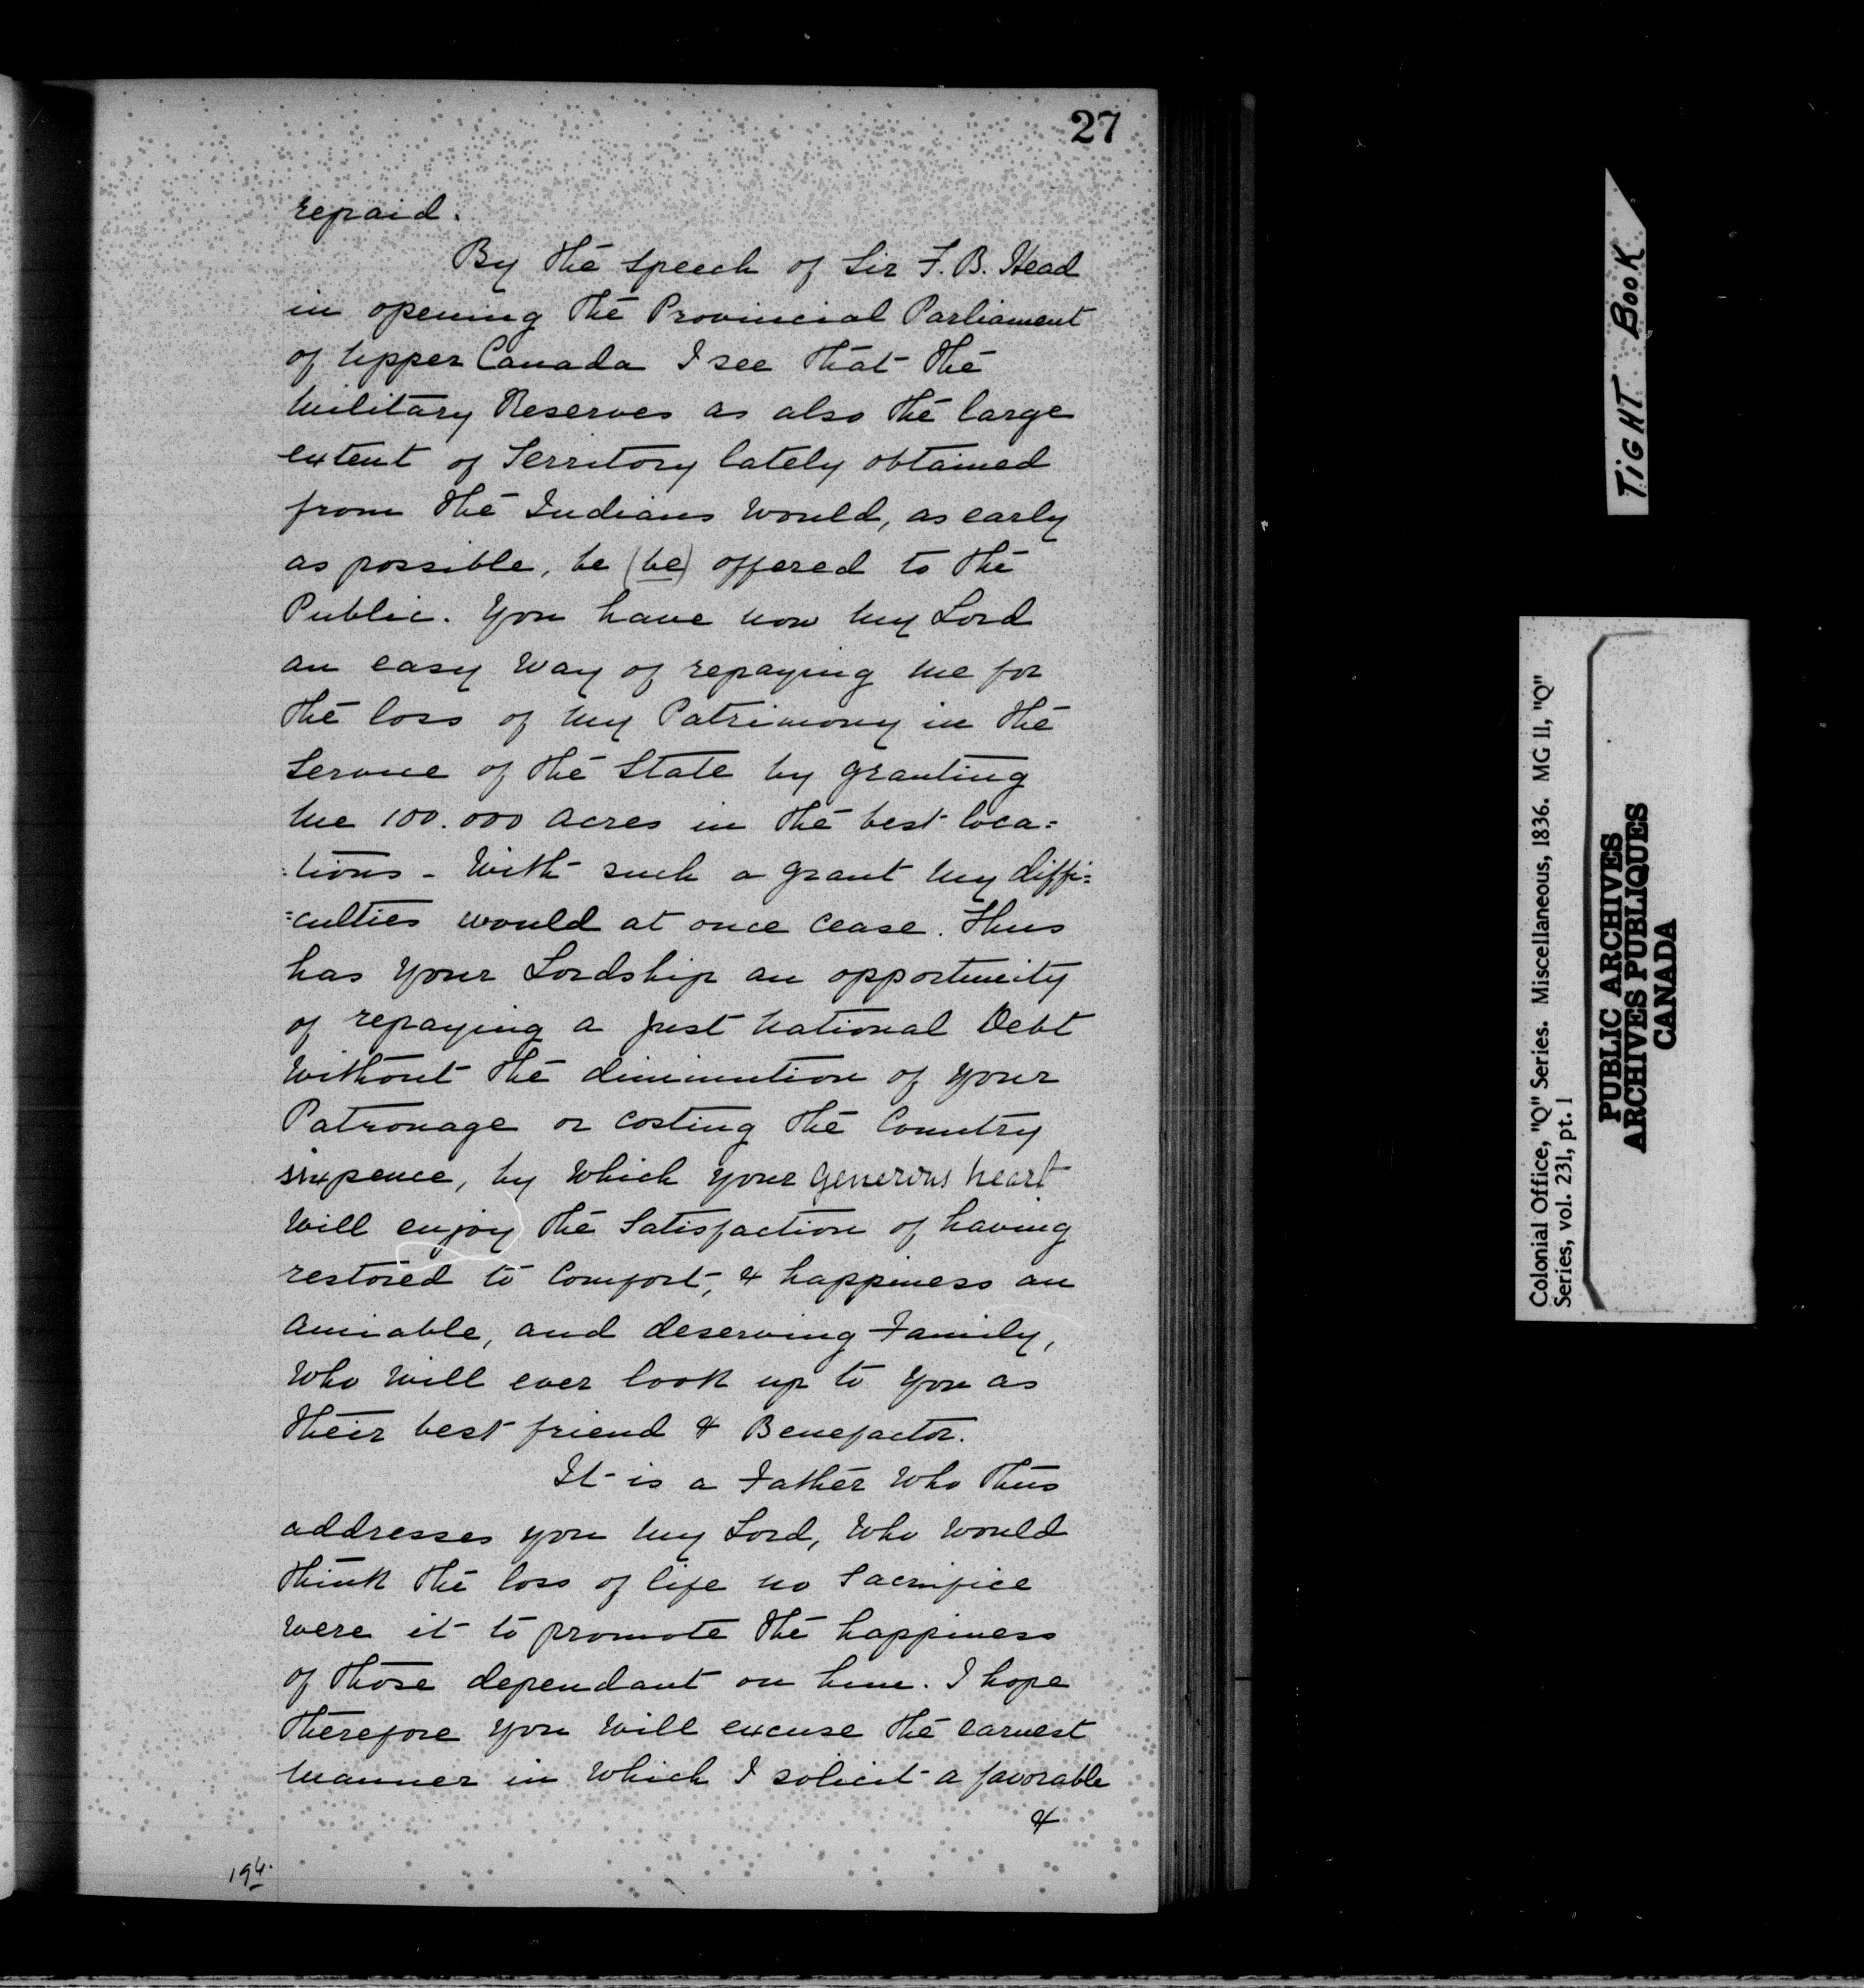 27
repaid.
By the speech of Sir F. B. Head
in opening the Provincial Parliament
of Upper Canada I see that the
Military Reserves as also the large
extent of Territory lately obtained
from the Indians would, as early
as possible, be (be) offered to the
Public. You have now my Lord
an easy way of repaying me for
the loss of my Patrimony in the
Service of the State by granting
me 100.000 acres in the best loca=
=tions - With such a grant my diffi=
=culties would at once cease. Thus
has your Lordship an opportunity
of repaying a just National Debt
without the diminution of your
Patronage or costing the Country
sixpence, by which your generous heart
will enjoy the Satisfaction of having
restored to Comfort, & happiness an
amiable, and deserving Family,
who will ever look up to you as
their best friend & Benefactor.
It is a Father who thus
addresses you my Lord, who would
think the loss of life no Sacrifice
were it to promote the happiness
of those dependant on him. I hope
therefore you will excuse the earnest
manner in which I solicit a favorable
&
194.
TIGHT BOOK
Colonial Office, "Q" Series. Miscellaneous, 1836. MG 11, "Q"
Series, vol. 231, pt. 1
PUBLIC ARCHIVES
ARCHIVES PUBLIQUES
CANADA